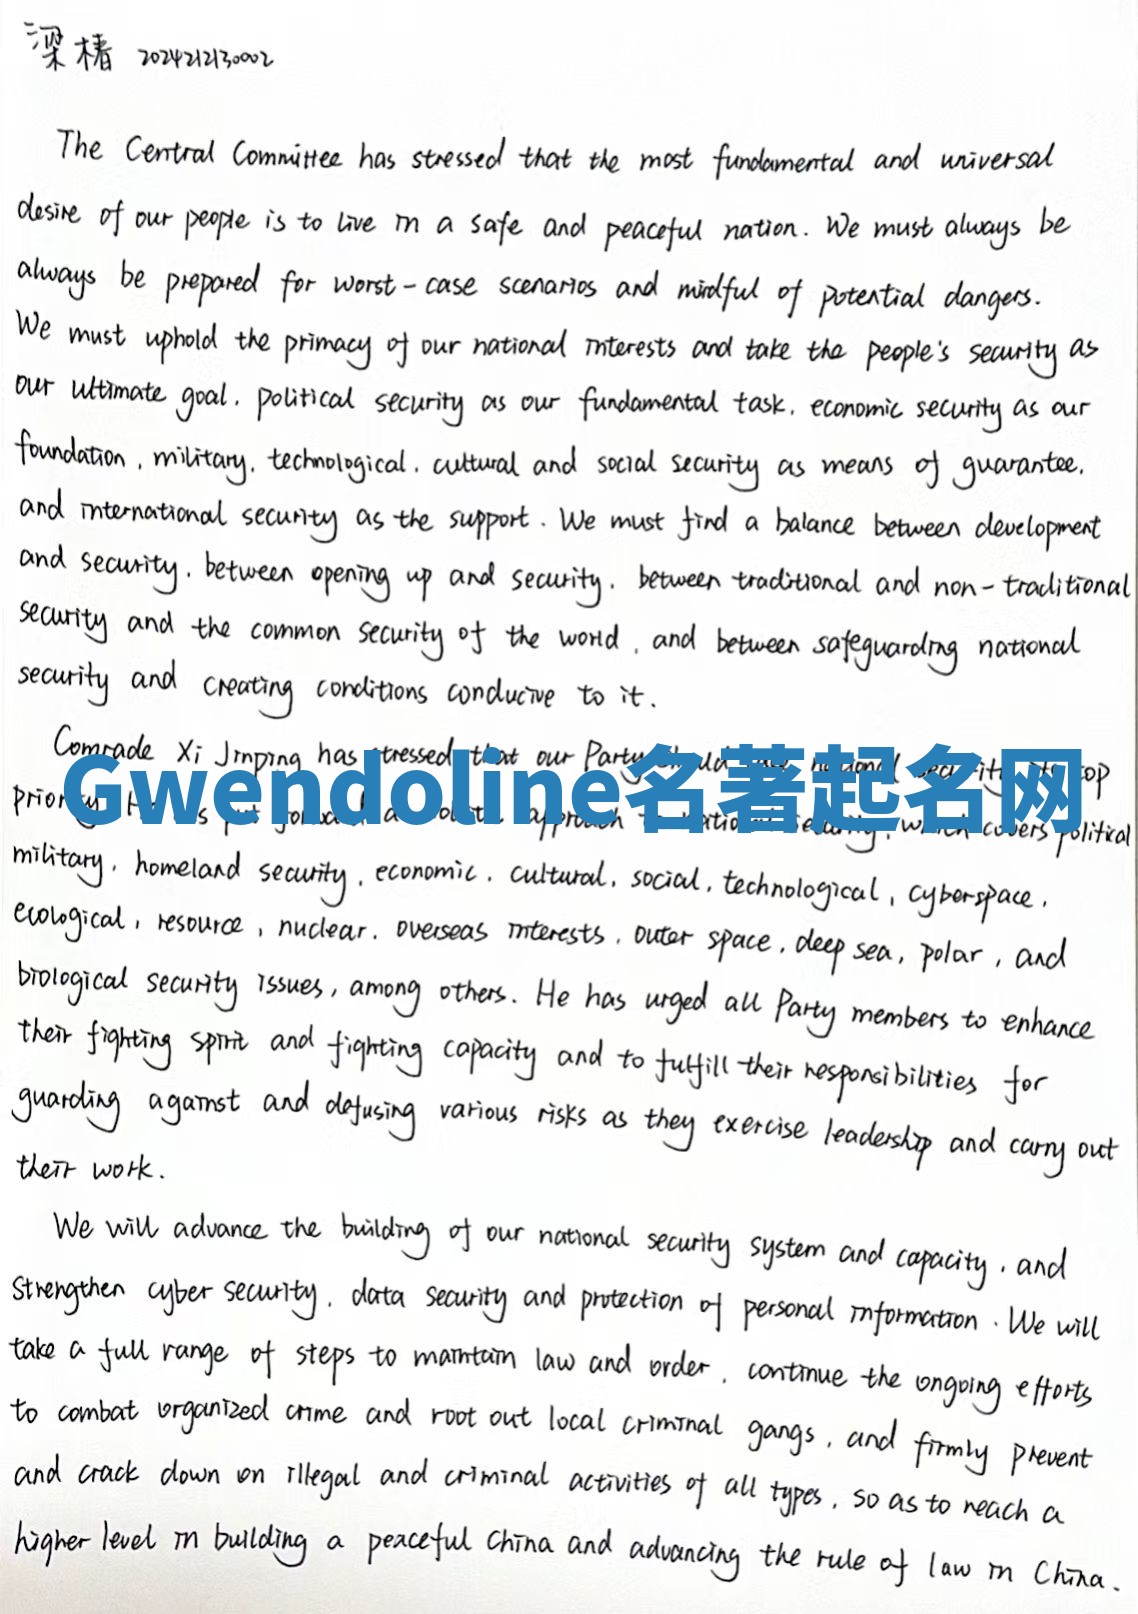 梁椿 2024212130002
The Central Committee has stressed that the most fundamental and universal
desire of our people is to live in a safe and peaceful nation. We must always be
always be prepared for worst-case scenarios and mindful of potential dangers.
We must uphold the primacy of our national interests and take the people's security as
our ultimate goal, political security as our fundamental task, economic security as our
foundation, military, technological, cultural and social security as means of guarantee,
and international security as the support. We must find a balance between development
and security, between opening up and security, between traditional and non-traditional
security and the common security of the world, and between safeguarding national
security and creating conditions conducive to it.
Comrade Xi Jinping has stressed that our Party national top
Gwendoline名著起名网
which covers political
military, homeland security, economic, cultural, social, technological, cyberspace,
ecological, resource, nuclear, overseas interests, outer space, deep sea, polar, and
biological security issues, among others. He has urged all Party members to enhance
their fighting spirit and fighting capacity and to fulfill their responsibilities for
guarding against and defusing various risks as they exercise leadership and carry out
their work.
We will advance the building of our national security system and capacity, and
strengthen cyber security, data security and protection of personal information. We will
take a full range of steps to maintain law and order, continue the ongoing efforts
to combat organized crime and root out local criminal gangs, and firmly prevent
and crack down on illegal and criminal activities of all types, so as to reach a
higher level in building a peaceful China and advancing the rule of law in China.